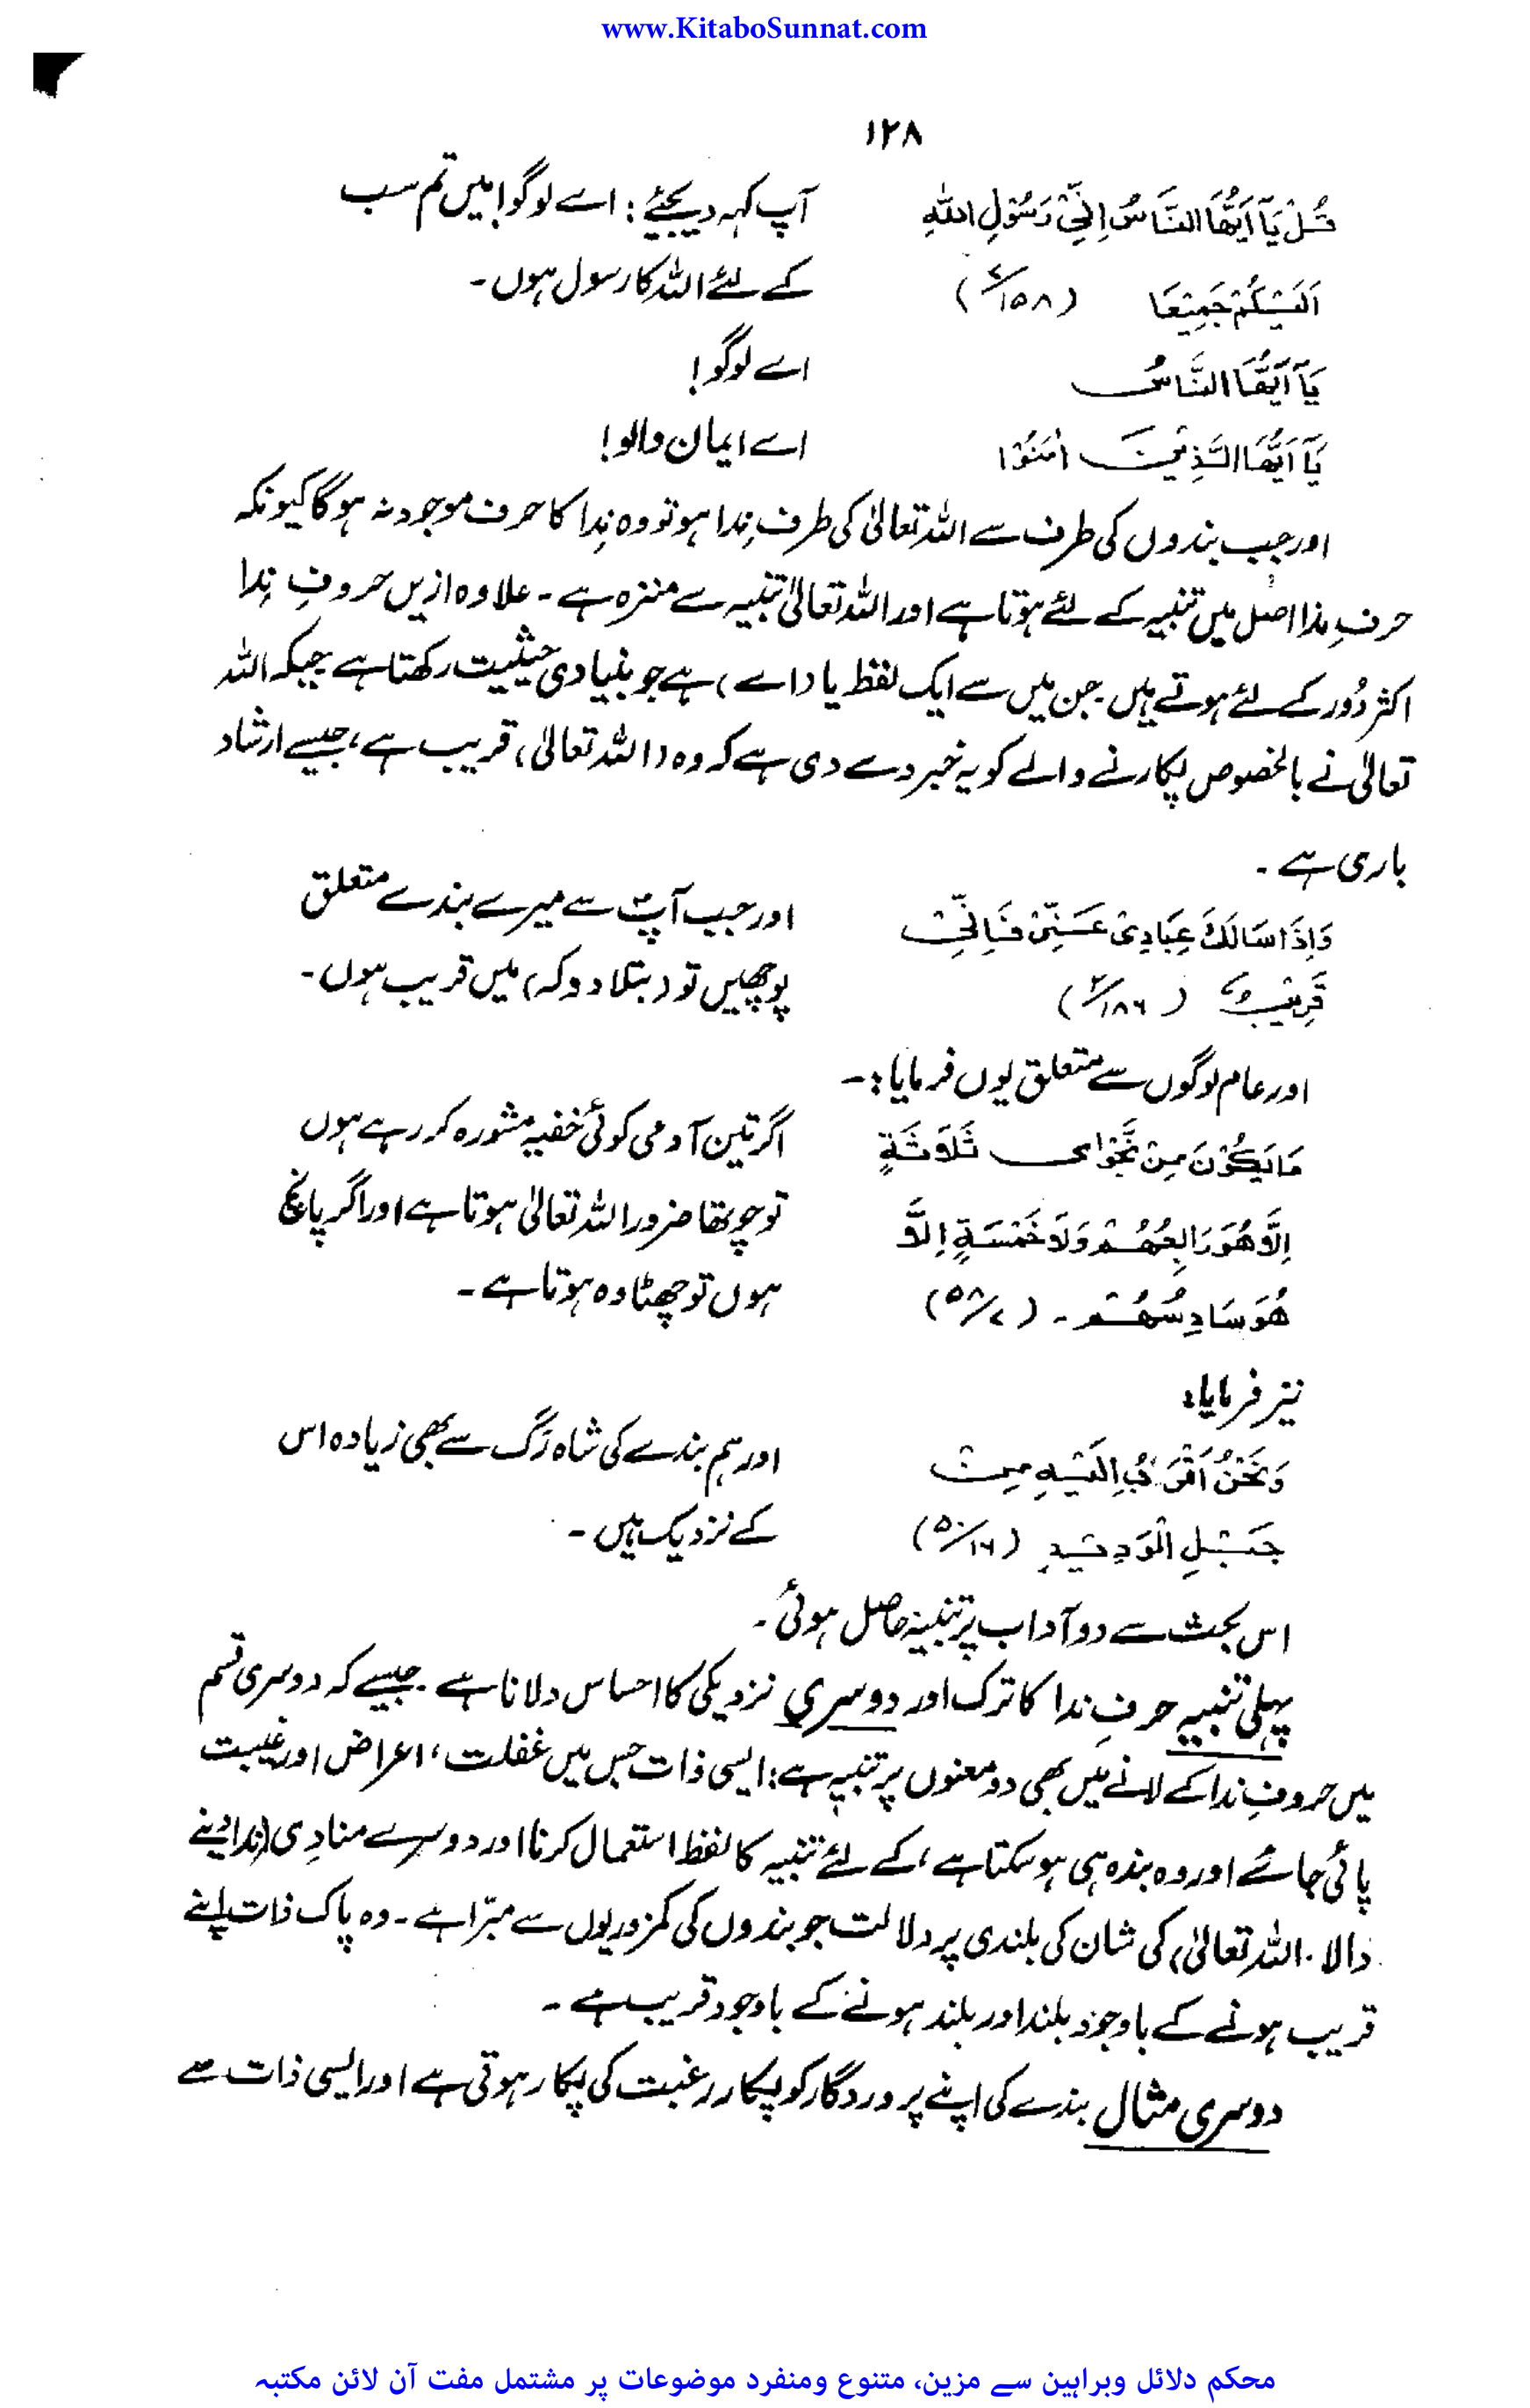 www.KitaboSunnat.com
۱۲۸
قُلْ يَآ اَيُّهَا النَّاسُ اِنِّىْ رَسُوْلِ اللّٰهِ
اِلَيْكُمْ جَمِيْعًا (۷/۱۵۸)
آپ کہہ دیجئے: اے لوگو! میں تم سب
کے لئے اللہ کا رسول ہوں۔
يَآ اَيُّهَا النَّاسُ
اے لوگو!
يَآ اَيُّهَا الَّذِيْنَ اٰمَنُوْا
اے ایمان والو!
اور جب بندوں کی طرف سے اللہ تعالیٰ کی طرف نِدا ہو تو وہ نِدا کا حرف موجود نہ ہوگا کیونکہ
حرفِ نداا صل میں تنبیہ کے لئے ہوتا ہے اور اللہ تعالیٰ تنبیہ سے منزہ ہے۔ علاوہ ازیں حروفِ نِدا
اکثر دُور کے لئے ہوتے ہیں۔ جن میں سے ایک لفظ یا (اے) ہے جو بنیادی حیثیت رکھتا ہے جبکہ اللہ
تعالیٰ نے بالخصوص پکارنے والے کو یہ خبر دے دی ہے کہ وہ (اللہ تعالیٰ) قریب ہے، جیسے ارشاد
باری ہے۔
وَاِذَا سَاَلَكَ عِبَادِىْ عَنِّىْ فَاِنِّىْ
قَرِيْبٌ (۲/۱۸۶)
اور جب آپؐ سے میرے بندے متعلق
پوچھیں تو (بتلا دو کہ) میں قریب ہوں۔
اور عام لوگوں سے متعلق یوں فرمایا:۔
مَا يَكُوْنَ مِنْ نَّجْوٰى ثَلَاثَةٍ
اِلَّا هُوَ رَابِعُهُمْ وَلَا خَمْسَةٍ اِلَّا
هُوَ سَادِسُهُمْ۔ (۵۸/۷)
اگر تین آدمی کوئی خفیہ مشورہ کر رہے ہوں
تو چوتھا ضرور اللہ تعالیٰ ہوتا ہے اور اگر پانچ
ہوں تو چھٹا وہ ہوتا ہے۔
نیز فرمایا:
وَنَحْنُ اَقْرَبُ اِلَيْهِ مِنْ
حَبْلِ الْوَرِيْدِ (۵۰/۱۶)
اور ہم بندے کی شاہ رَگ سے بھی زیادہ اس
کے نزدیک ہیں۔
اس بحث سے دو آداب پر تنبیہ حاصل ہوئی۔
پہلی تنبیہ حرفِ ندا کا ترک اور دوسری نزدیکی کا احساس دلانا ہے۔ جیسے کہ دوسری قسم
میں حروفِ ندا کے لانے میں بھی دو معنوں پر تنبیہ ہے: ایسی ذات جس میں غفلت، اعراض اور غیبت
پائی جائے اور وہ بندہ ہی ہو سکتا ہے، کے لئے تنبیہ کا لفظ استعمال کرنا اور دوسرے منادِی (ندا دینے
والا۔ اللہ تعالیٰ) کی شان کی بلندی پر دلالت جو بندوں کی کمزوریوں سے مبرّا ہے۔ وہ پاک ذات اپنے
قریب ہونے کے باوجود بلند اور بلند ہونے کے باوجود قریب ہے۔
دوسری مثال بندے کی اپنے پروردگار کو پکار رغبت کی پکار ہوتی ہے اور ایسی ذات سے
محکم دلائل وبراہین سے مزین، متنوع ومنفرد موضوعات پر مشتمل مفت آن لائن مکتبہ